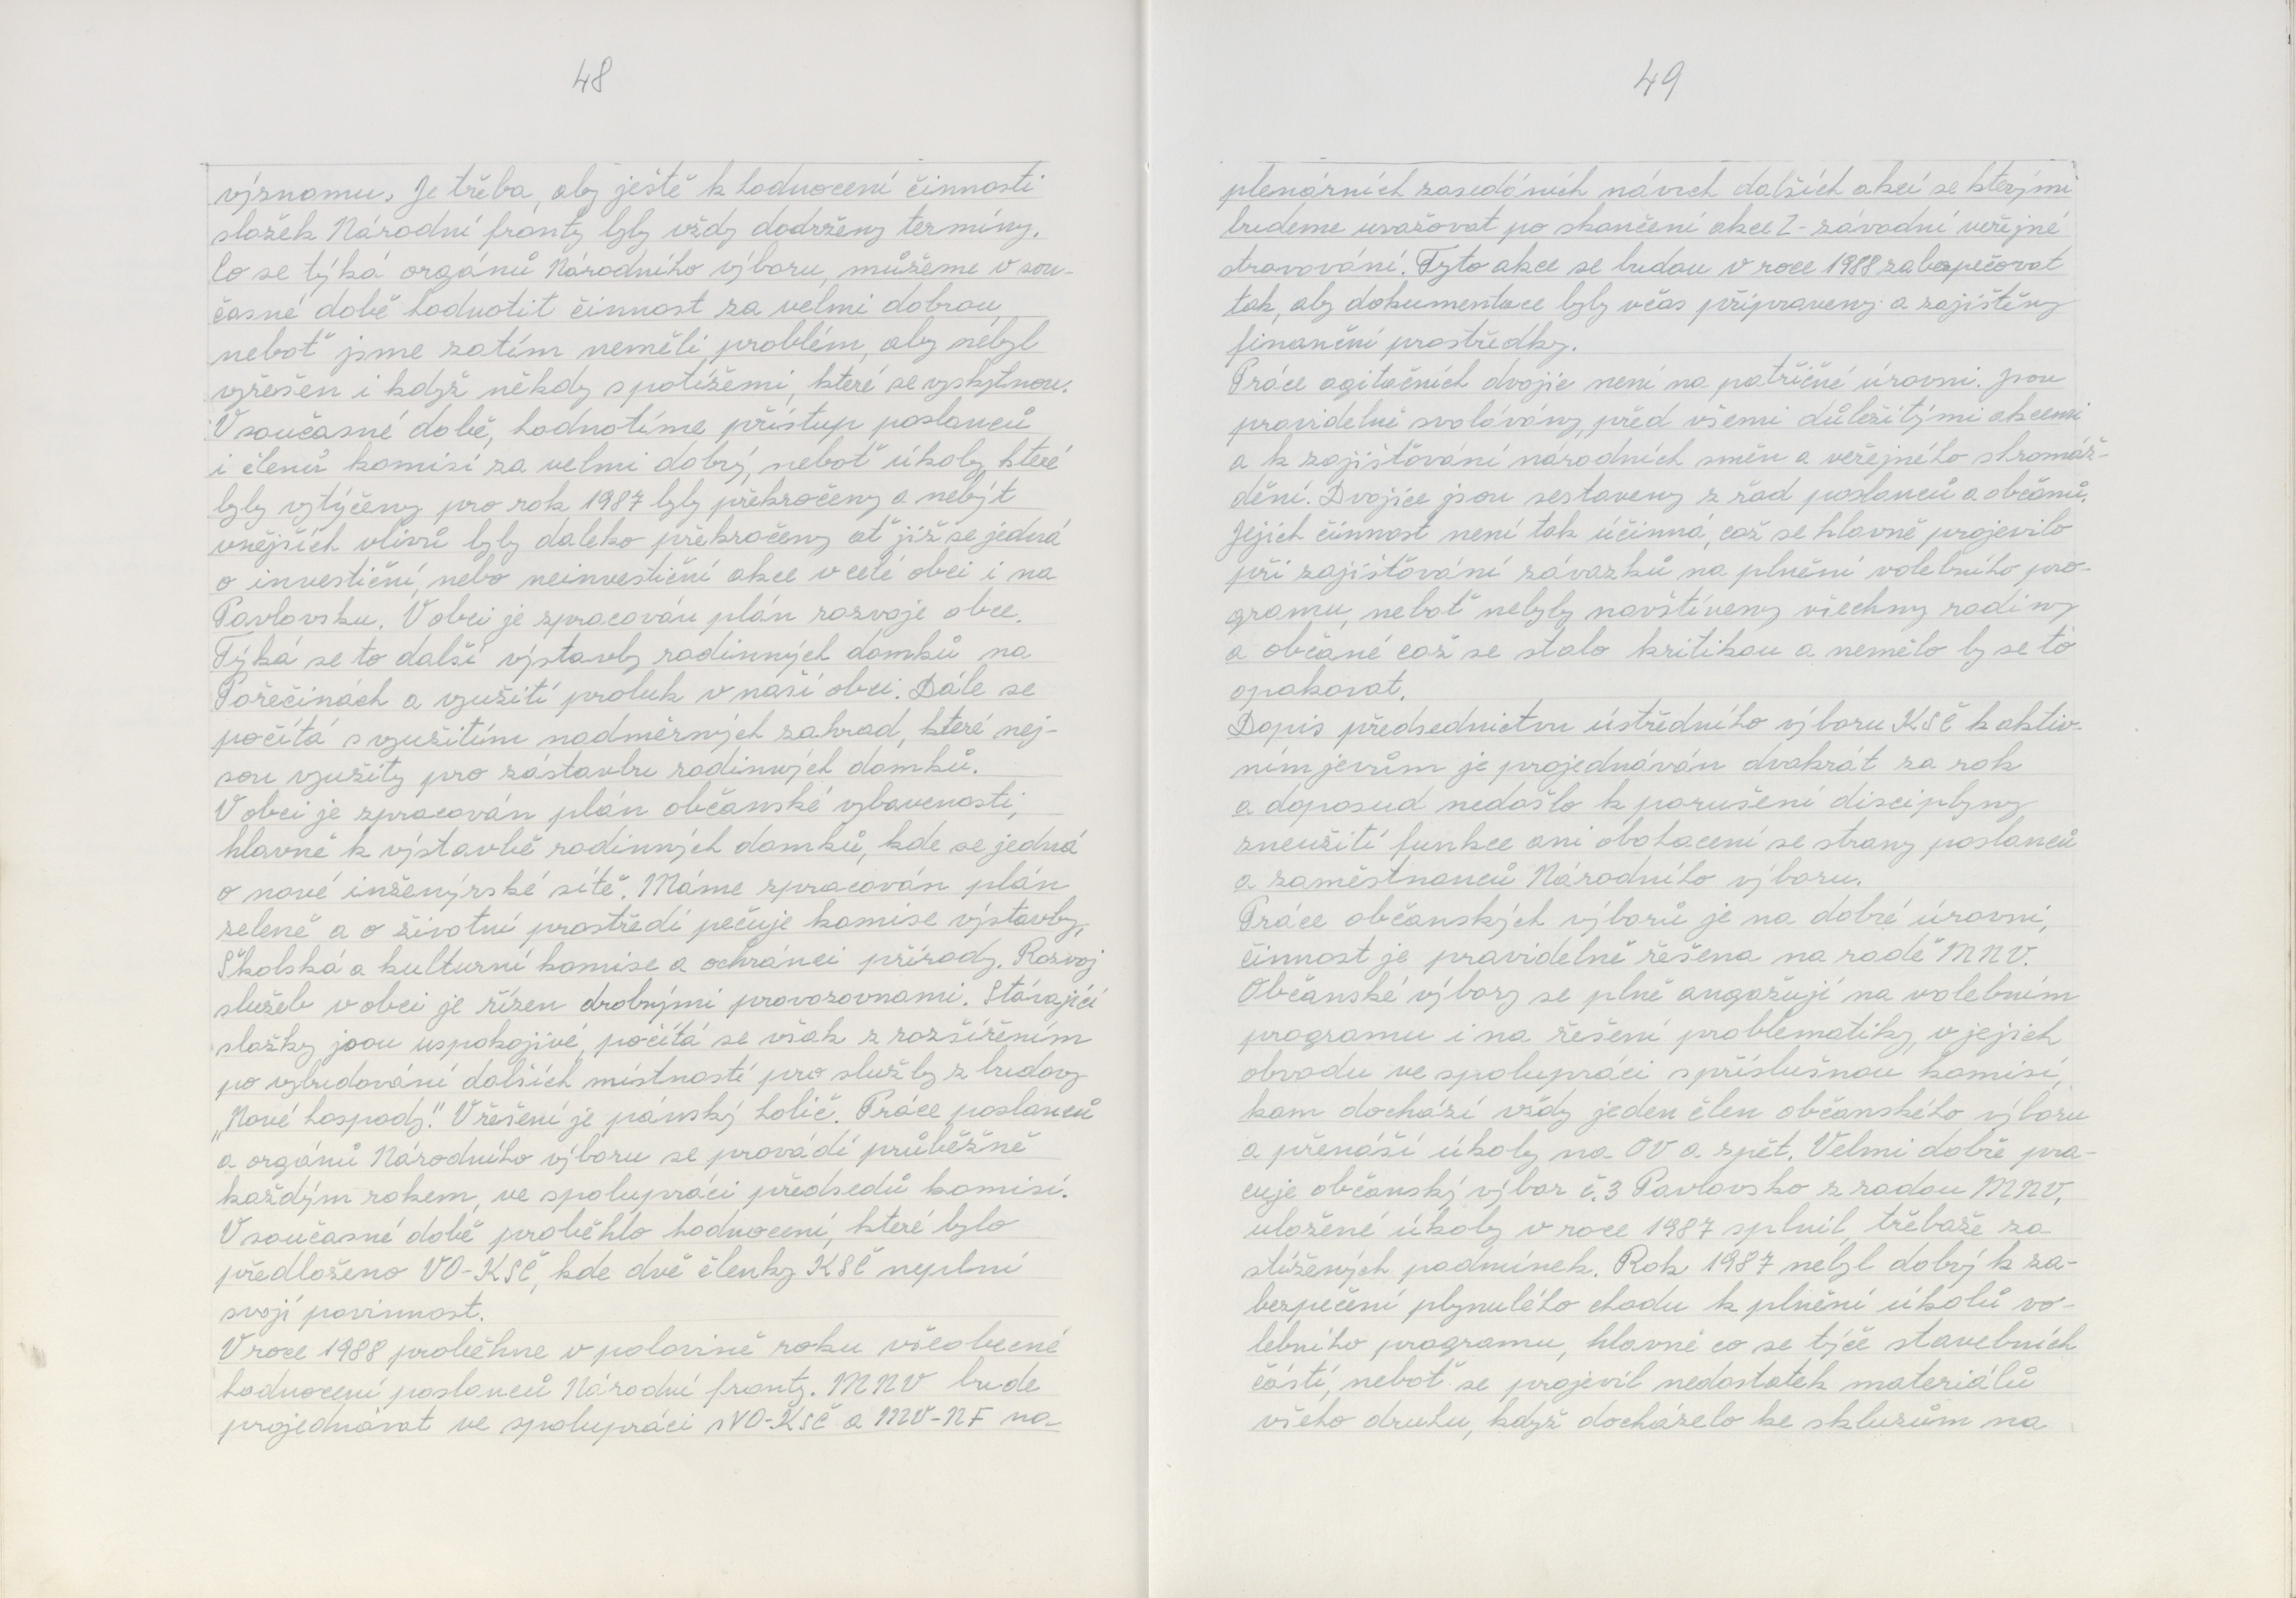 48
významu. Je třeba, aby ještě k hodnocení činnosti
složek Národní fronty byly vždy dodrženy termíny.
Co se týká orgánů Národního výboru, můžeme v sou-
časné době hodnotit činnost za velmi dobrou,
neboť jsme zatím neměli problém, aby nebyl
vyřešen i když někdy s potížemi, které se vyskytnou.
V současné době, hodnotíme přístup poslanců
i členů komisí za velmi dobrý, neboť úkoly, které
byly vytýčeny pro rok 1987 byly překročeny a nebýt
vnějších vlivů byly daleko překročeny ať již se jedná
o investiční, nebo neinvestiční akce v celé obci i na
Pavlovsku. V obci je zpracován plán rozvoje obce.
Týká se to další výstavby rodinných domků na
Pořečinách a využití proluk v naší obci. Dále se
počítá s využitím nadměrných zahrad, které nej-
sou využity pro zástavbu rodinných domků.
V obci je zpracován plán občanské vybavenosti,
hlavně k výstavbě rodinných domků, kde se jedná
o nové inženýrské sítě. Máme zpracován plán
zeleně a o životní prostředí pečuje komise výstavby,
Školská a kulturní komise a ochránci přírody. Rozvoj
služeb v obci je řízen drobnými provozovnami. Stávající
složky jsou uspokojivé, počítá se však z rozšířením
po vybudování dalších místností pro služby z budovy
„Nové hospody." V řešení je pánský holič. Práce poslanců
a orgánů Národního výboru se provádí průběžně
každým rokem, ve spolupráci předsedů komisí.
V současné době proběhlo hodnocení, které bylo
předloženo VO-KSČ, kde dvě členky KSČ neplní
svojí povinnost.
V roce 1988 proběhne v polovině roku všeobecné
hodnocení poslanců Národní fronty. MNV bude
projednávat ve spolupráci s VO-KSČ a MV-NF na
49
plenárních zasedáních návrh dalších akcí se kterými
budeme uvažovat po skončení akce Z-závodní veřejné
stravování. Tyto akce se budou v roce 1988 zabezpečovat
tak, aby dokumentace byly včas připraveny a zajištěny
finanční prostředky.
Práce agitačních dvojic není na patřičné úrovni. Jsou
pravidelně svolávány, před všemi důležitými akcemi
a k zajišťování národních směn a veřejného shromáž-
dění. Dvojice jsou sestaveny z řad poslanců a občanů.
Jejich činnost není tak účinná, což se hlavně projevilo
při zajišťování závazků na plnění volebního pro-
gramu, neboť nebyly navštíveny všechny rodiny
a občané což se stalo kritikou a nemělo by se to
opakovat.
Dopis předsednictvu ústředního výboru KSČ k aktiv-
ním jevům je projednáván dvakrát za rok
a doposud nedošlo k porušení disciplyny
zneužití funkce ani obohacení se strany poslanců
a zaměstnanců Národního výboru.
Práce občanských výborů je na dobré úrovni,
činnost je pravidelně řešena na radě MNV.
Občanské výbory se plně angažují na volebním
programu i na řešení problematiky, v jejich
obvodu ve spolupráci s příslušnou komisí,
kam dochází vždy jeden člen občanského výboru
a přenáší úkoly na OV a zpět. Velmi dobře pra-
cuje občanský výbor č. 3 Pavlovsko z radou MNV,
uložené úkoly v roce 1987 splnil, třebaže za
stížených podmínek. Rok 1987 nebyl dobrý k za-
bezpečení plynulého chodu k plnění úkolů vo-
lebního programu, hlavně co se týče stavebních
částí, neboť se projevil nedostatek materiálů
všeho druhu, když docházelo ke skluzům na